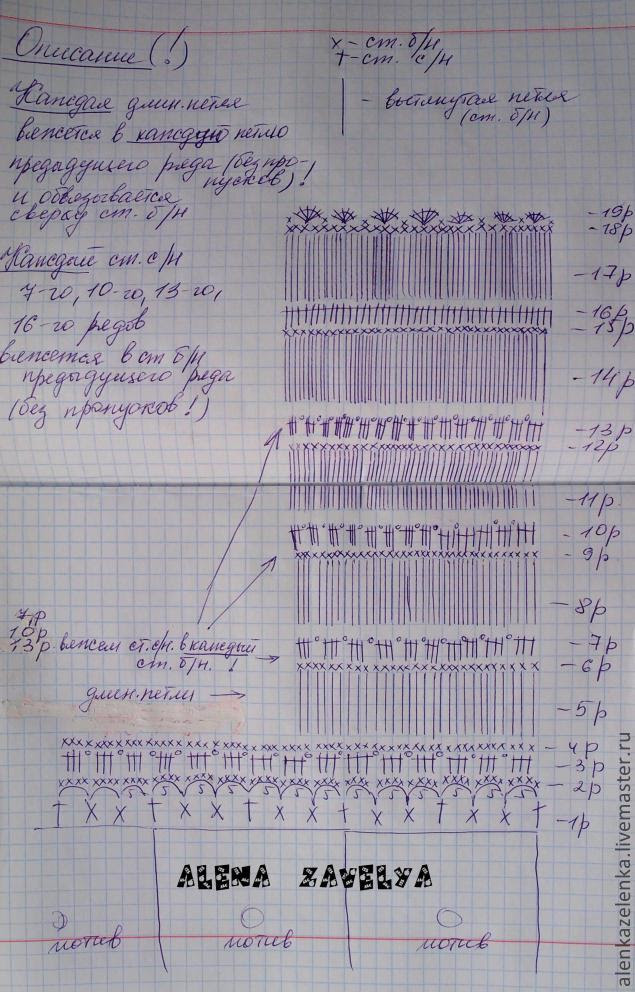 Описание (!)
x - ст. б/н
† - ст. с/н
| - вытянутая петля
(ст. б/н)
Каждая длин. петля
вяжется в каждую петлю
предыдущего ряда (без про-
пусков)!
и обвязывается
сверху ст. б/н
Каждый ст. с/н
7-го, 10-го, 13-го,
16-го рядов
вяжется в ст б/н
предыдущего ряда
(без пропусков!)
- 19р
- 18р
- 17р
- 16р
- 15р
- 14р
- 13р
- 12р
- 11р
- 10р
- 9р
- 8р
7р
10р
13р вяжем ст. с/н. в каждый
ст. б/н. !
- 7р
- 6р
длин. петли
- 5р
- 4р
- 3р
- 2р
5 5 5 5 5 5 5 5
- 1р
ALENA ZAVELYA
мотив мотив мотив
alenkazelenka.livemaster.ru